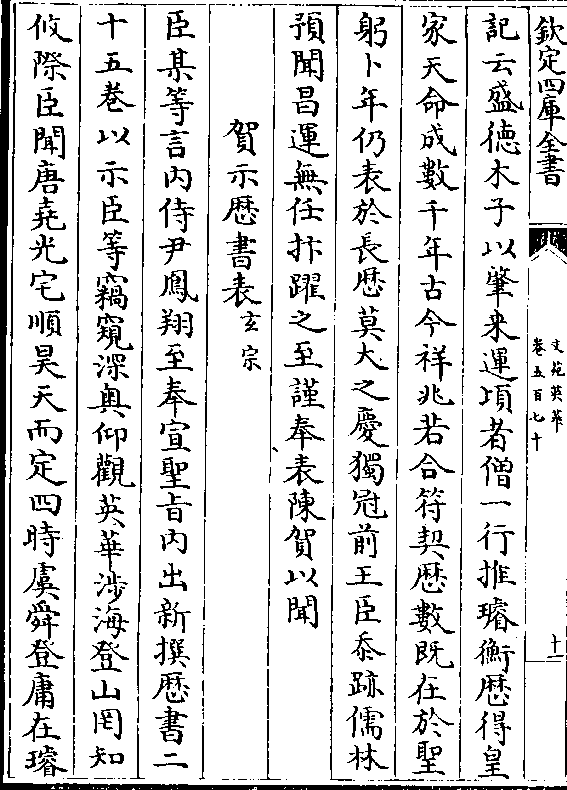 欽定四庫全書
文苑英華
卷五百七十
十一
記云盛德木子以肇来運項者僧一行推璿衡歴得皇
家天命成數千年古今祥兆若合符契歴數既在於聖
躬卜年仍表於長歴莫大之慶獨冠前王臣忝跡儒林
預聞昌運無任抃躍之至謹奉表陳賀以聞
賀示歴書表玄宗
臣某等言内侍尹鳳翔至奉宣聖旨内出新撰歴書二
十五巻以示臣等竊窺深奥仰觀英華渉海登山罔知
攸際臣聞唐堯光宅順昊天而定四時虞舜登庸在璿